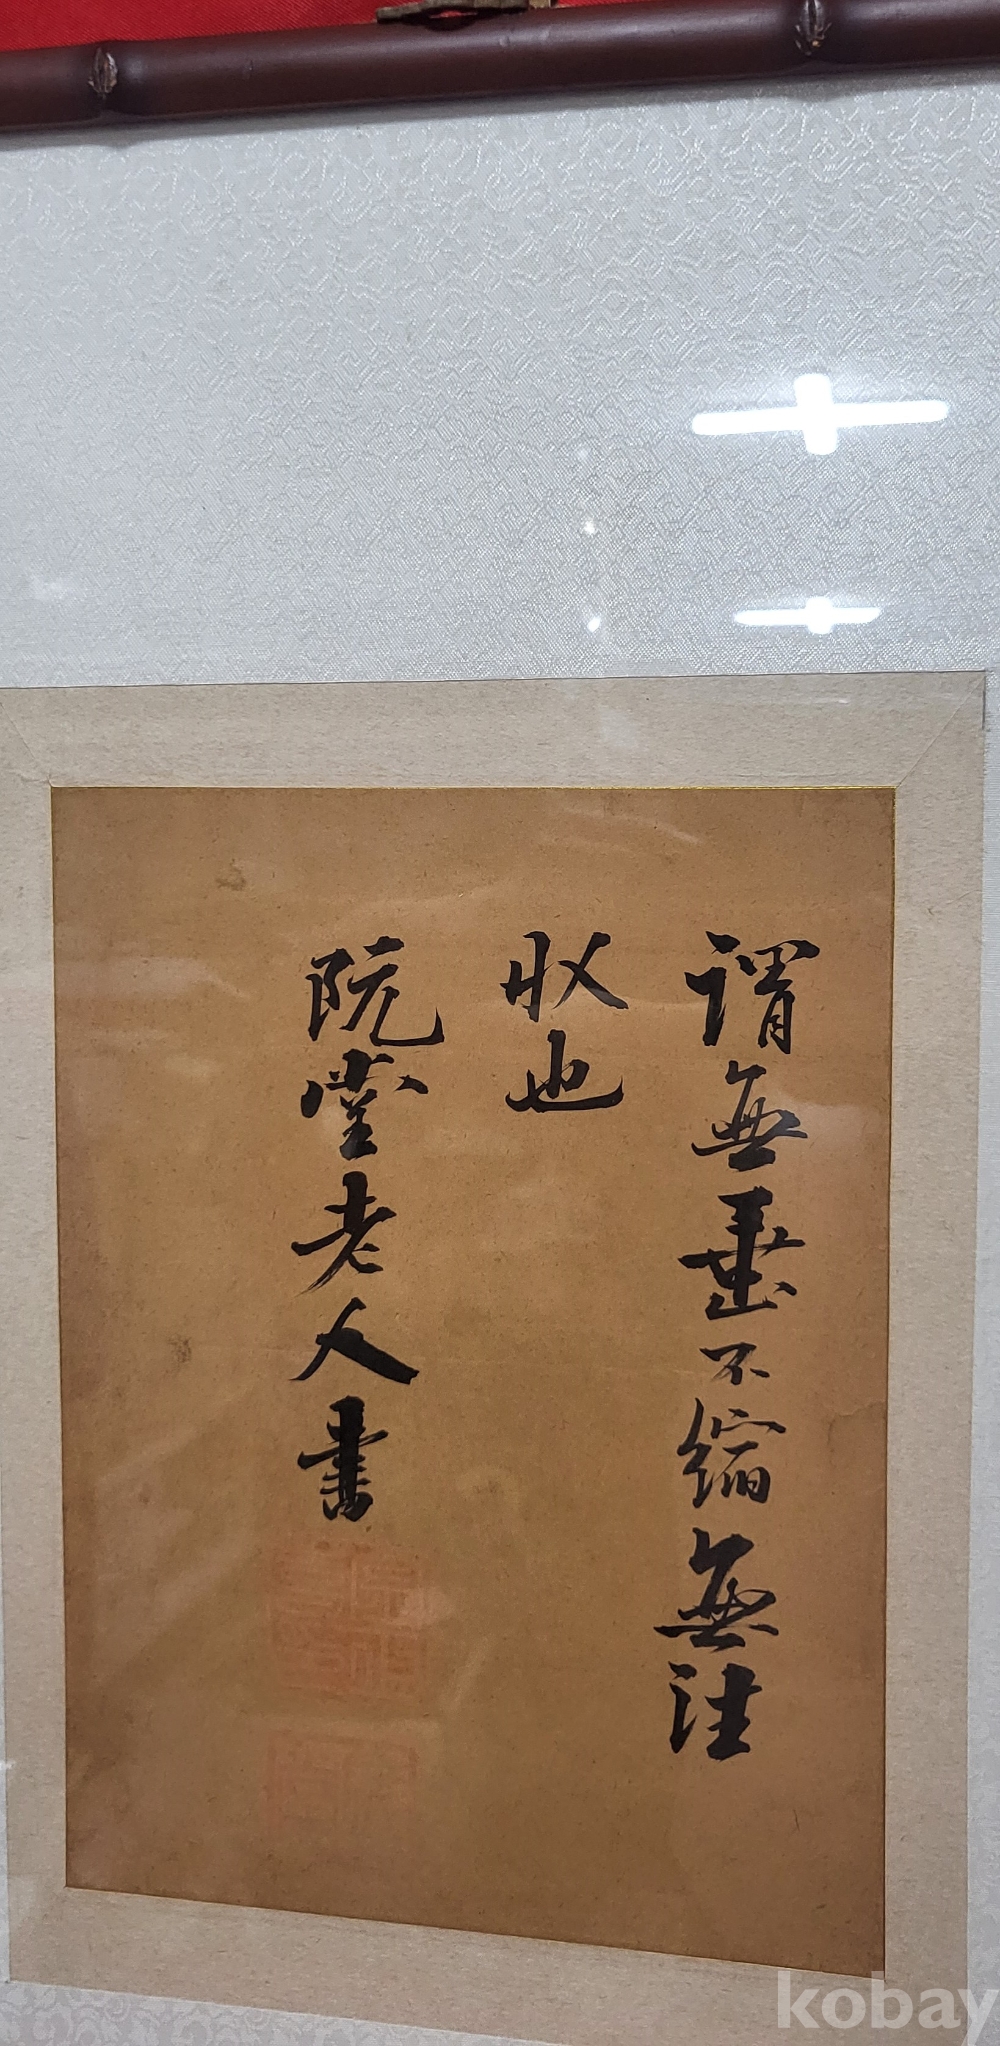 謂無垂不縮無往
收也
阮堂老人書
kobay